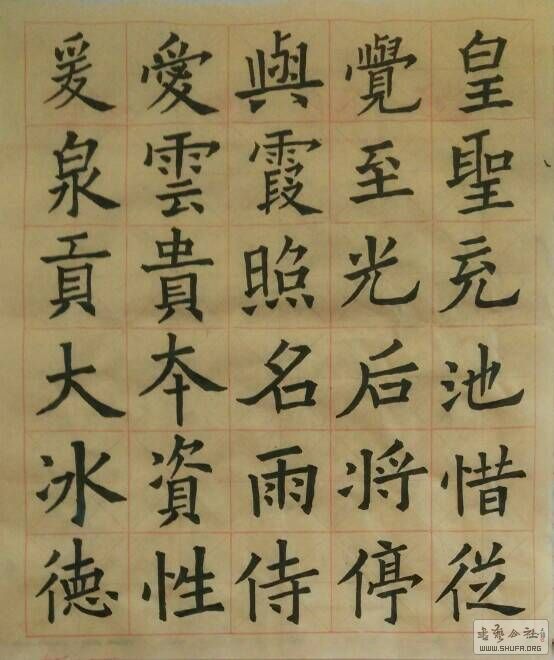 皇聖充池惜從
覺至光后将停
與霞照名雨侍
愛雲貴夲資性
爰泉貢大冰徳
书艺公社
WWW.SHUFA.ORG